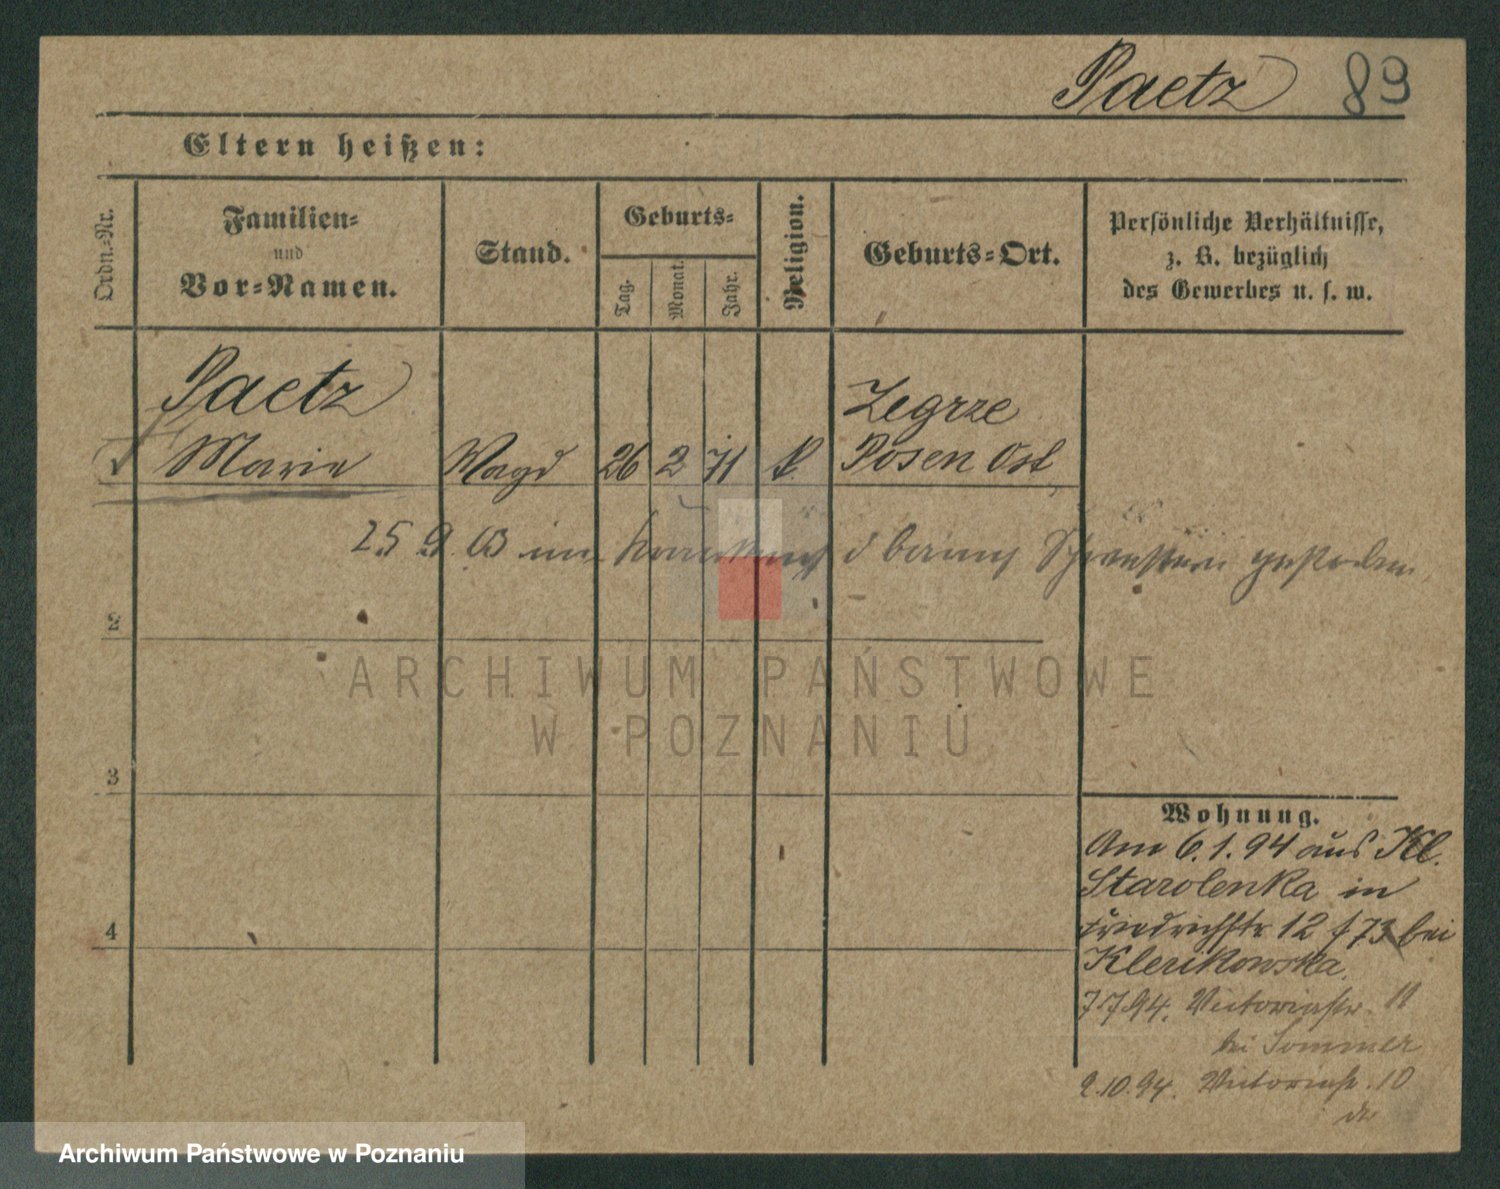 Paetz 89
Eltern heißen:
Ordn.-Nr.
Familien-
und
Vor-Namen.
Stand.
Geburts-
Tag.
Monat.
Jahr.
Religion.
Geburts-Ort.
Persönliche Verhältnisse,
z. B. bezüglich
des Gewerbes u. s. w.
Paetz
Marie Magd 26 2 71 k.
Zegrze
Posen Ost
25.9.03 im d barmh Schwestern gestorben
2
3
4
Wohnung.
Am 6.1.94 aus Kl.
Starolenka in
Friedrichstr 12 f 73 bei
Klerikowska.
7.7.94. Victoriastr. 11
bei Sommer
2.10.94. Victoriastr. 10
ARCHIWUM PAŃSTWOWE
W POZNANIU
Archiwum Państwowe w Poznaniu